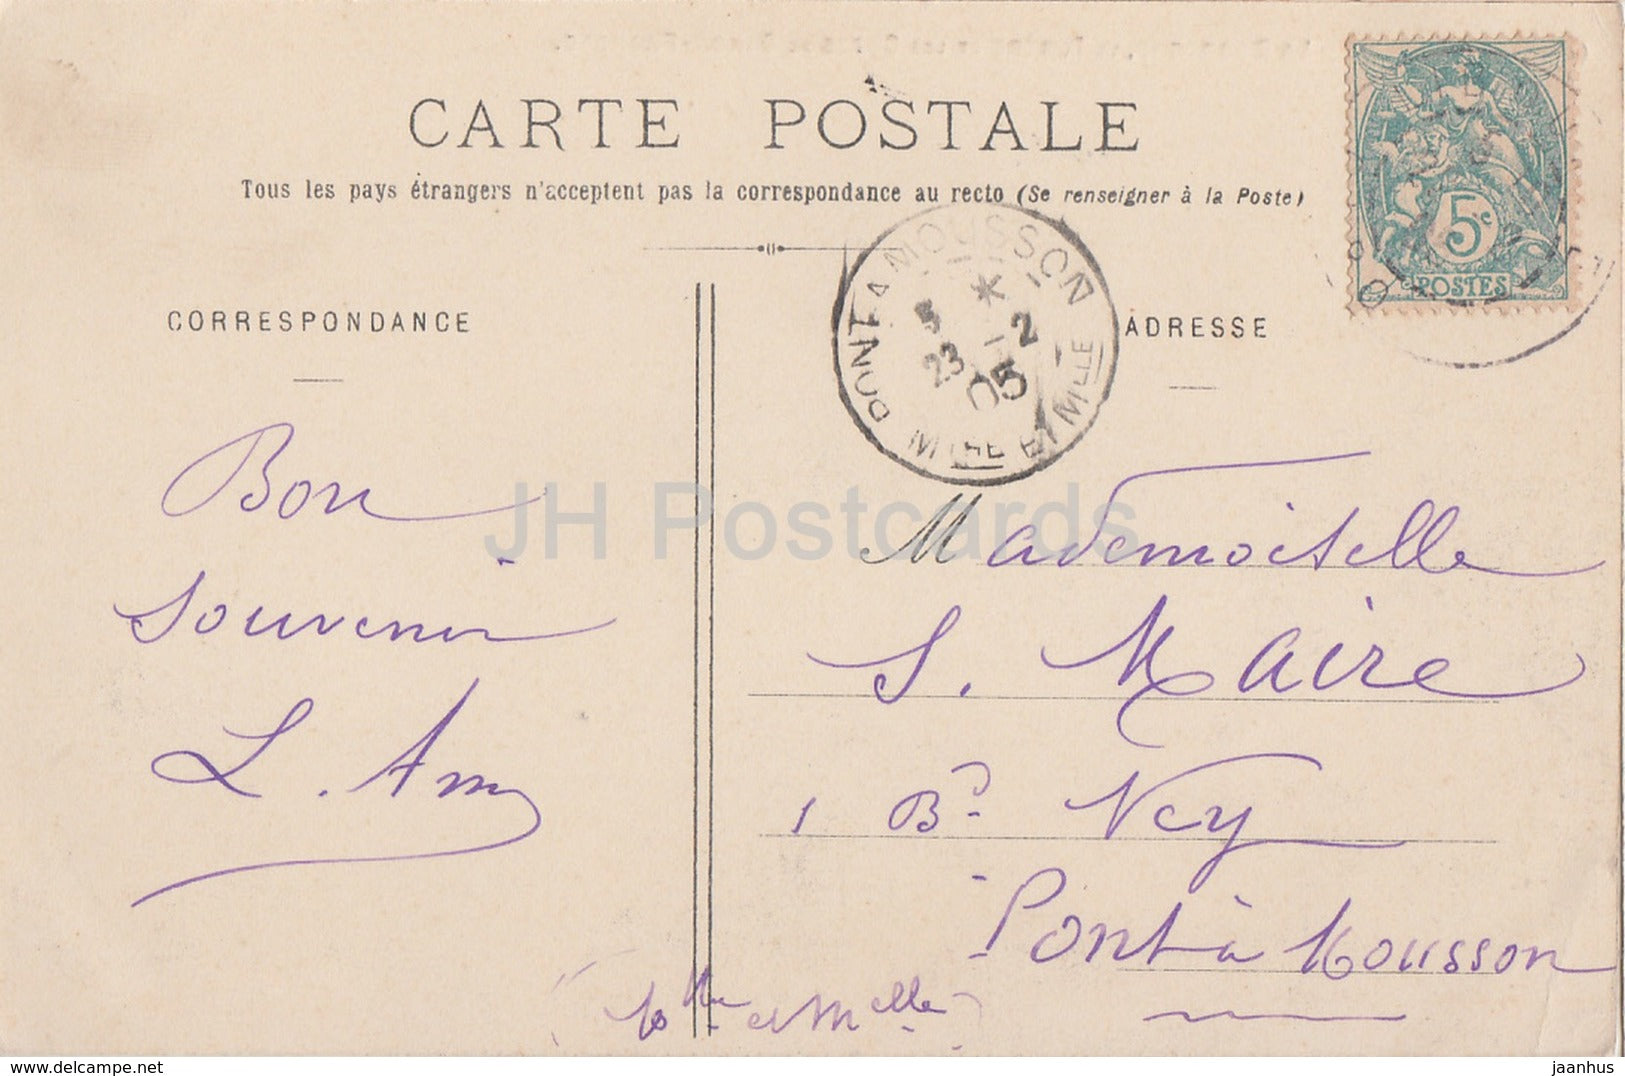 CARTE POSTALE
Tous les pays étrangers n'acceptent pas la correspondance au recto (Se renseigner à la Poste)
5c
POSTES
PONT A MOUSSON
5 * 2
23 - 05
MTHE ET MLLE
CORRESPONDANCE
ADRESSE
Bon
Souvenir
L. Amy
Mademoiselle
S. Maire
1 Bd Ney
Pont à Mousson
(Mthe et Mlle)
JH Postcards
delcampe.net
jaanhus